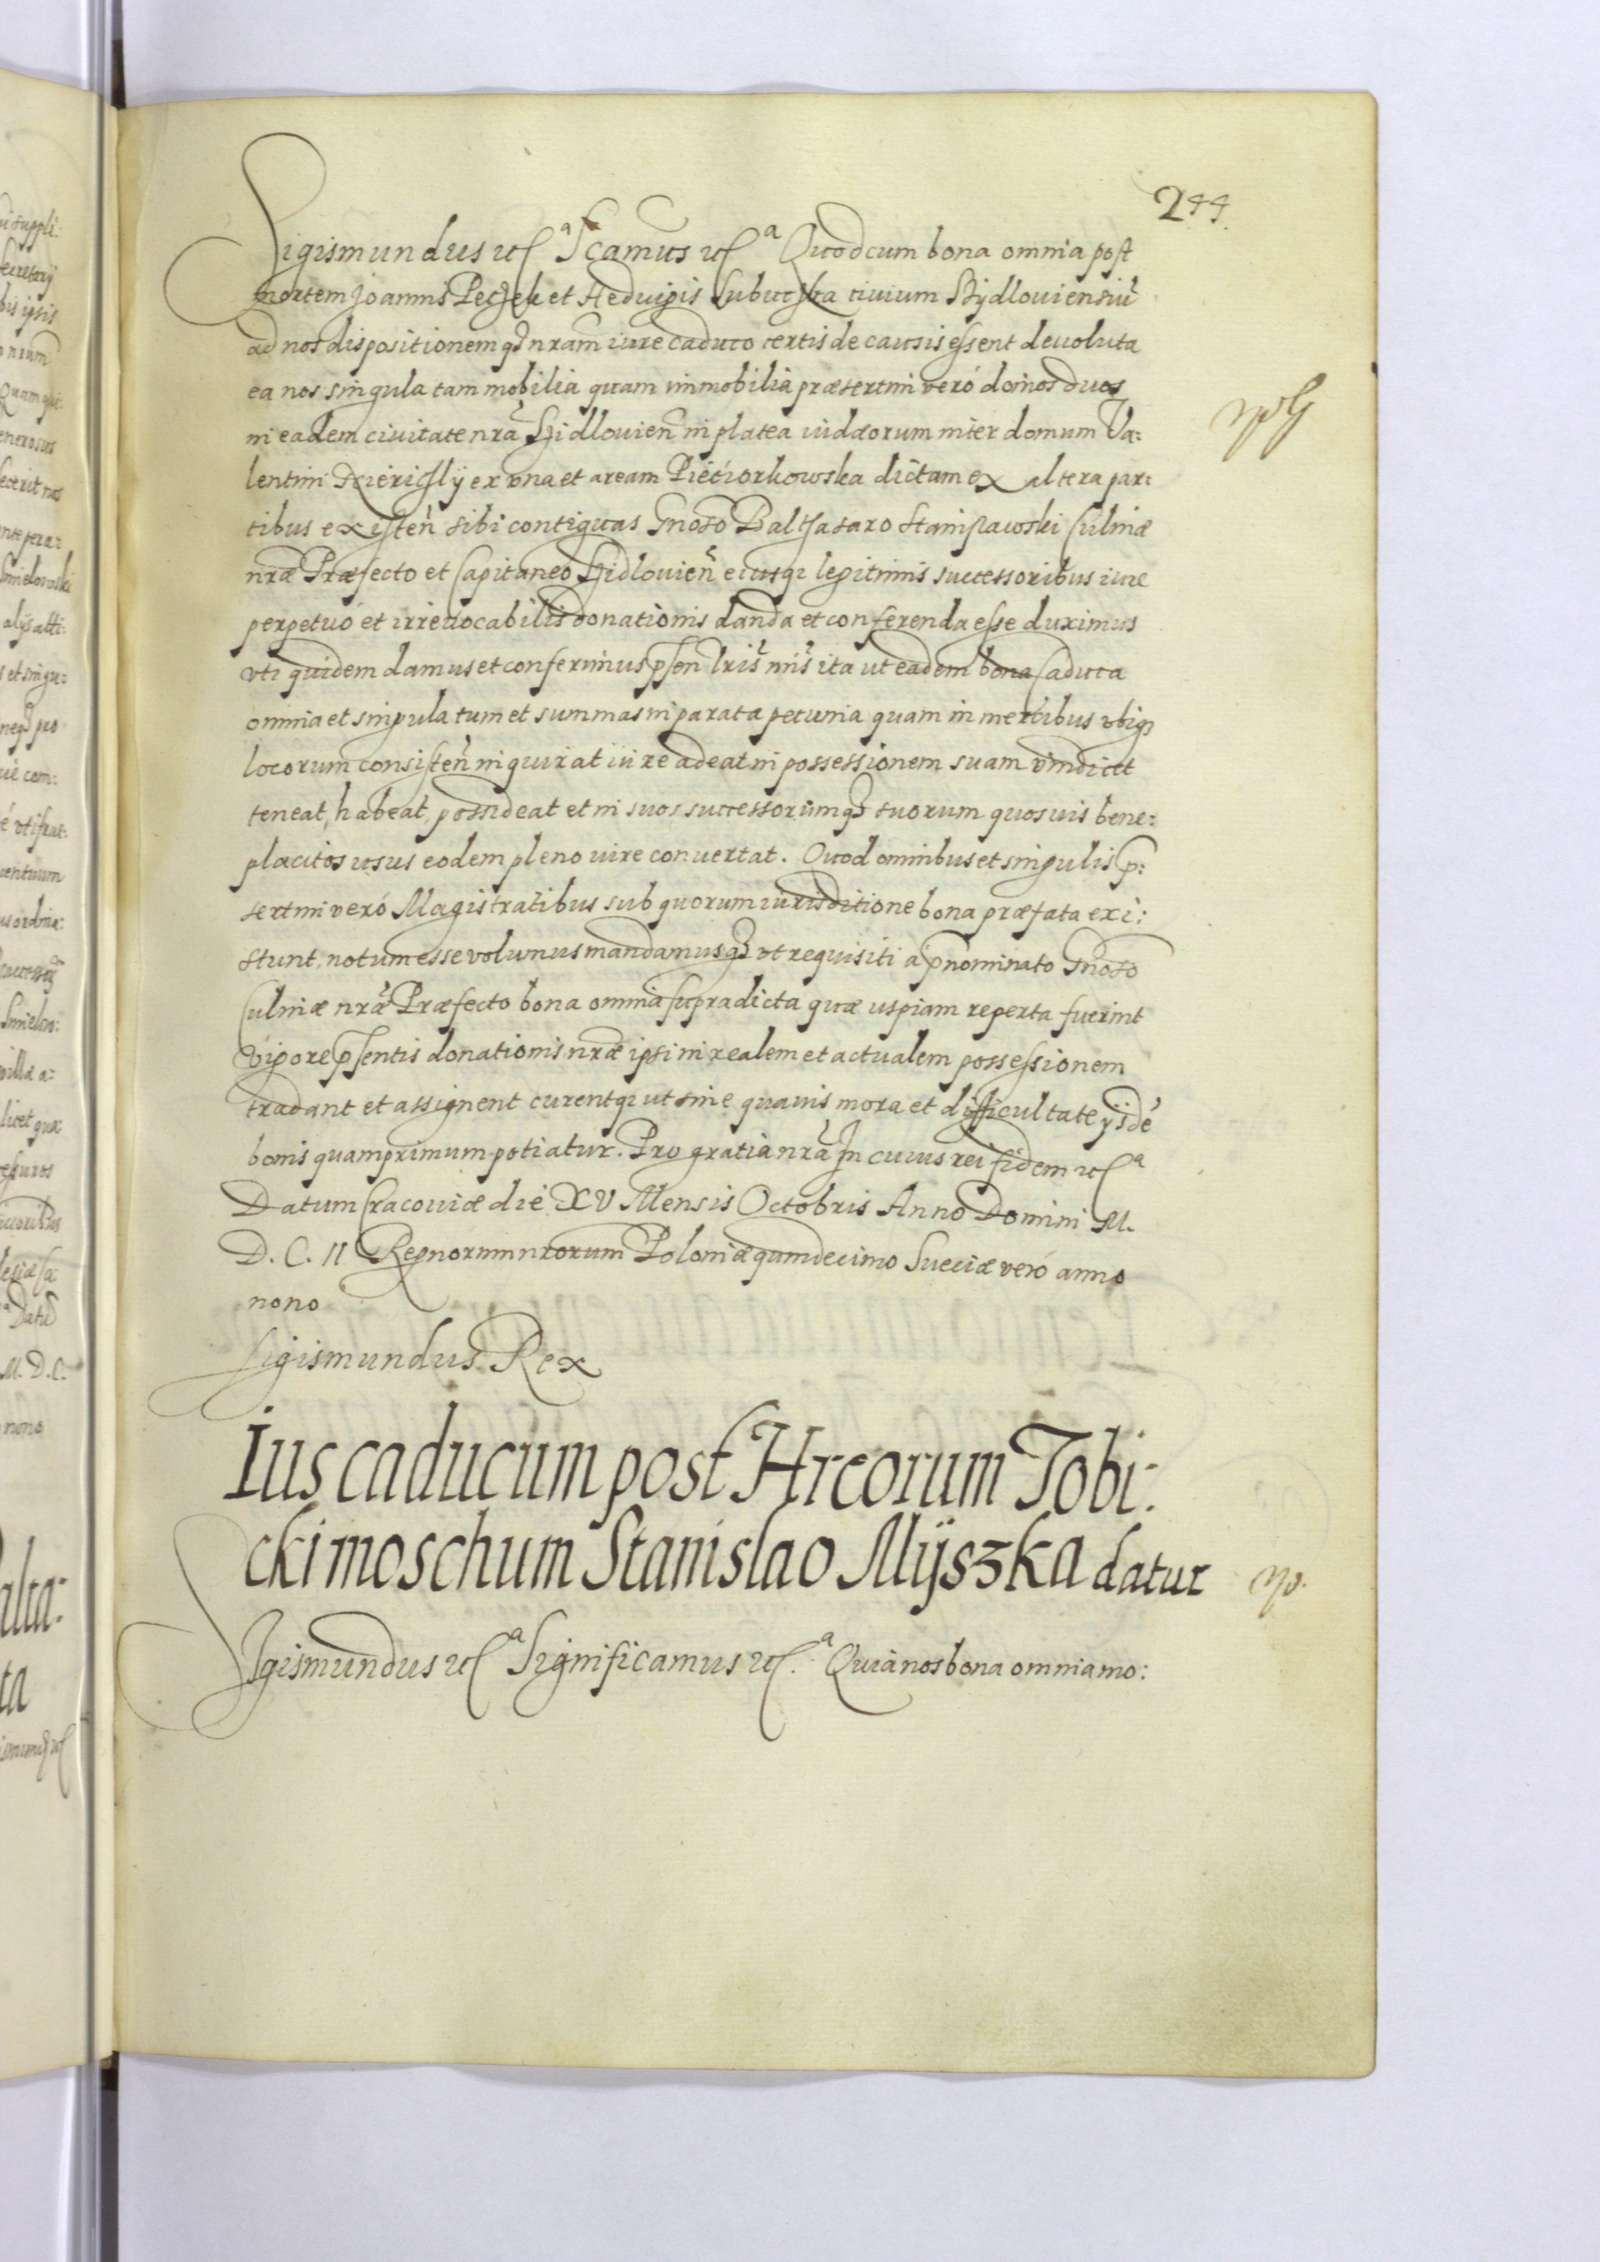 244
Sigismundus etc.ª Scamus etc.ª Quod cum bona omnia post
mortem Joannis Peczek et Heduigis civium Szydlouiensiu
ad nos dispositionemq3 nram iure caduco certis de causis essent deuoluta
ea nos singula tam mobilia quam immobilia præsertim veró domos duas
in eadem ciuitate nra Szidlouien in platea iudæorum inter domum Va:
lentini ex vna et aream Pieciorkowska dictam ex altera par:
tibus existen sibi contiguas Gnoso Balthasaro Stanislawski Culinæ
nræ Præfecto et Capitaneo Szidlouien eiusq3 legitimis successoribus iure
perpetuó et irreuocabilis donationis danda et conferenda esse duximus
vti quidem damus et conferimus psen lris nris ita ut eadem bona caduca
omnia et singula tum et summas in parata pecunia quam in mercibus vbiq3
locorum consisten inquirat iure adeat in possessionem suam vindicet
teneat, habeat, possideat et in suos successorumq3 suorum quosuis bene:
placitos usus eodem pleno iure conuertat. Quod omnibus et singulis p:
sertim veró Magistratibus sub quorum iurisditione bona præfata exi:
stunt, notum esse volumus mandamusq3 vt requisiti a pnominato Gnoso
Culinæ nræ Præfecto bona omnia supradicta quæ uspiam reperta fuerint
Vigore psentis donationis nræ ipsi in realem et actualem possessionem
tradant et assignent curentq3 ut sine quauis mora et difficultate ijsdé
bonis quamprimum potiatur. Pro gratia nra In cuius rei fidem etc.ª
Datum Cracouiæ die XV Mensis Octobris Anno Domini M.
D. C. II Regnorum nrorum Poloniæ quindecimo Sueciæ veró anno
nono
Sigismundus Rex
Ius caducum post Hreorum Tobi:
cki moschum Stanislao Mijszka datur
Sigismundus etc.ª Significamus etc.ª Quia nos bona omnia mo: